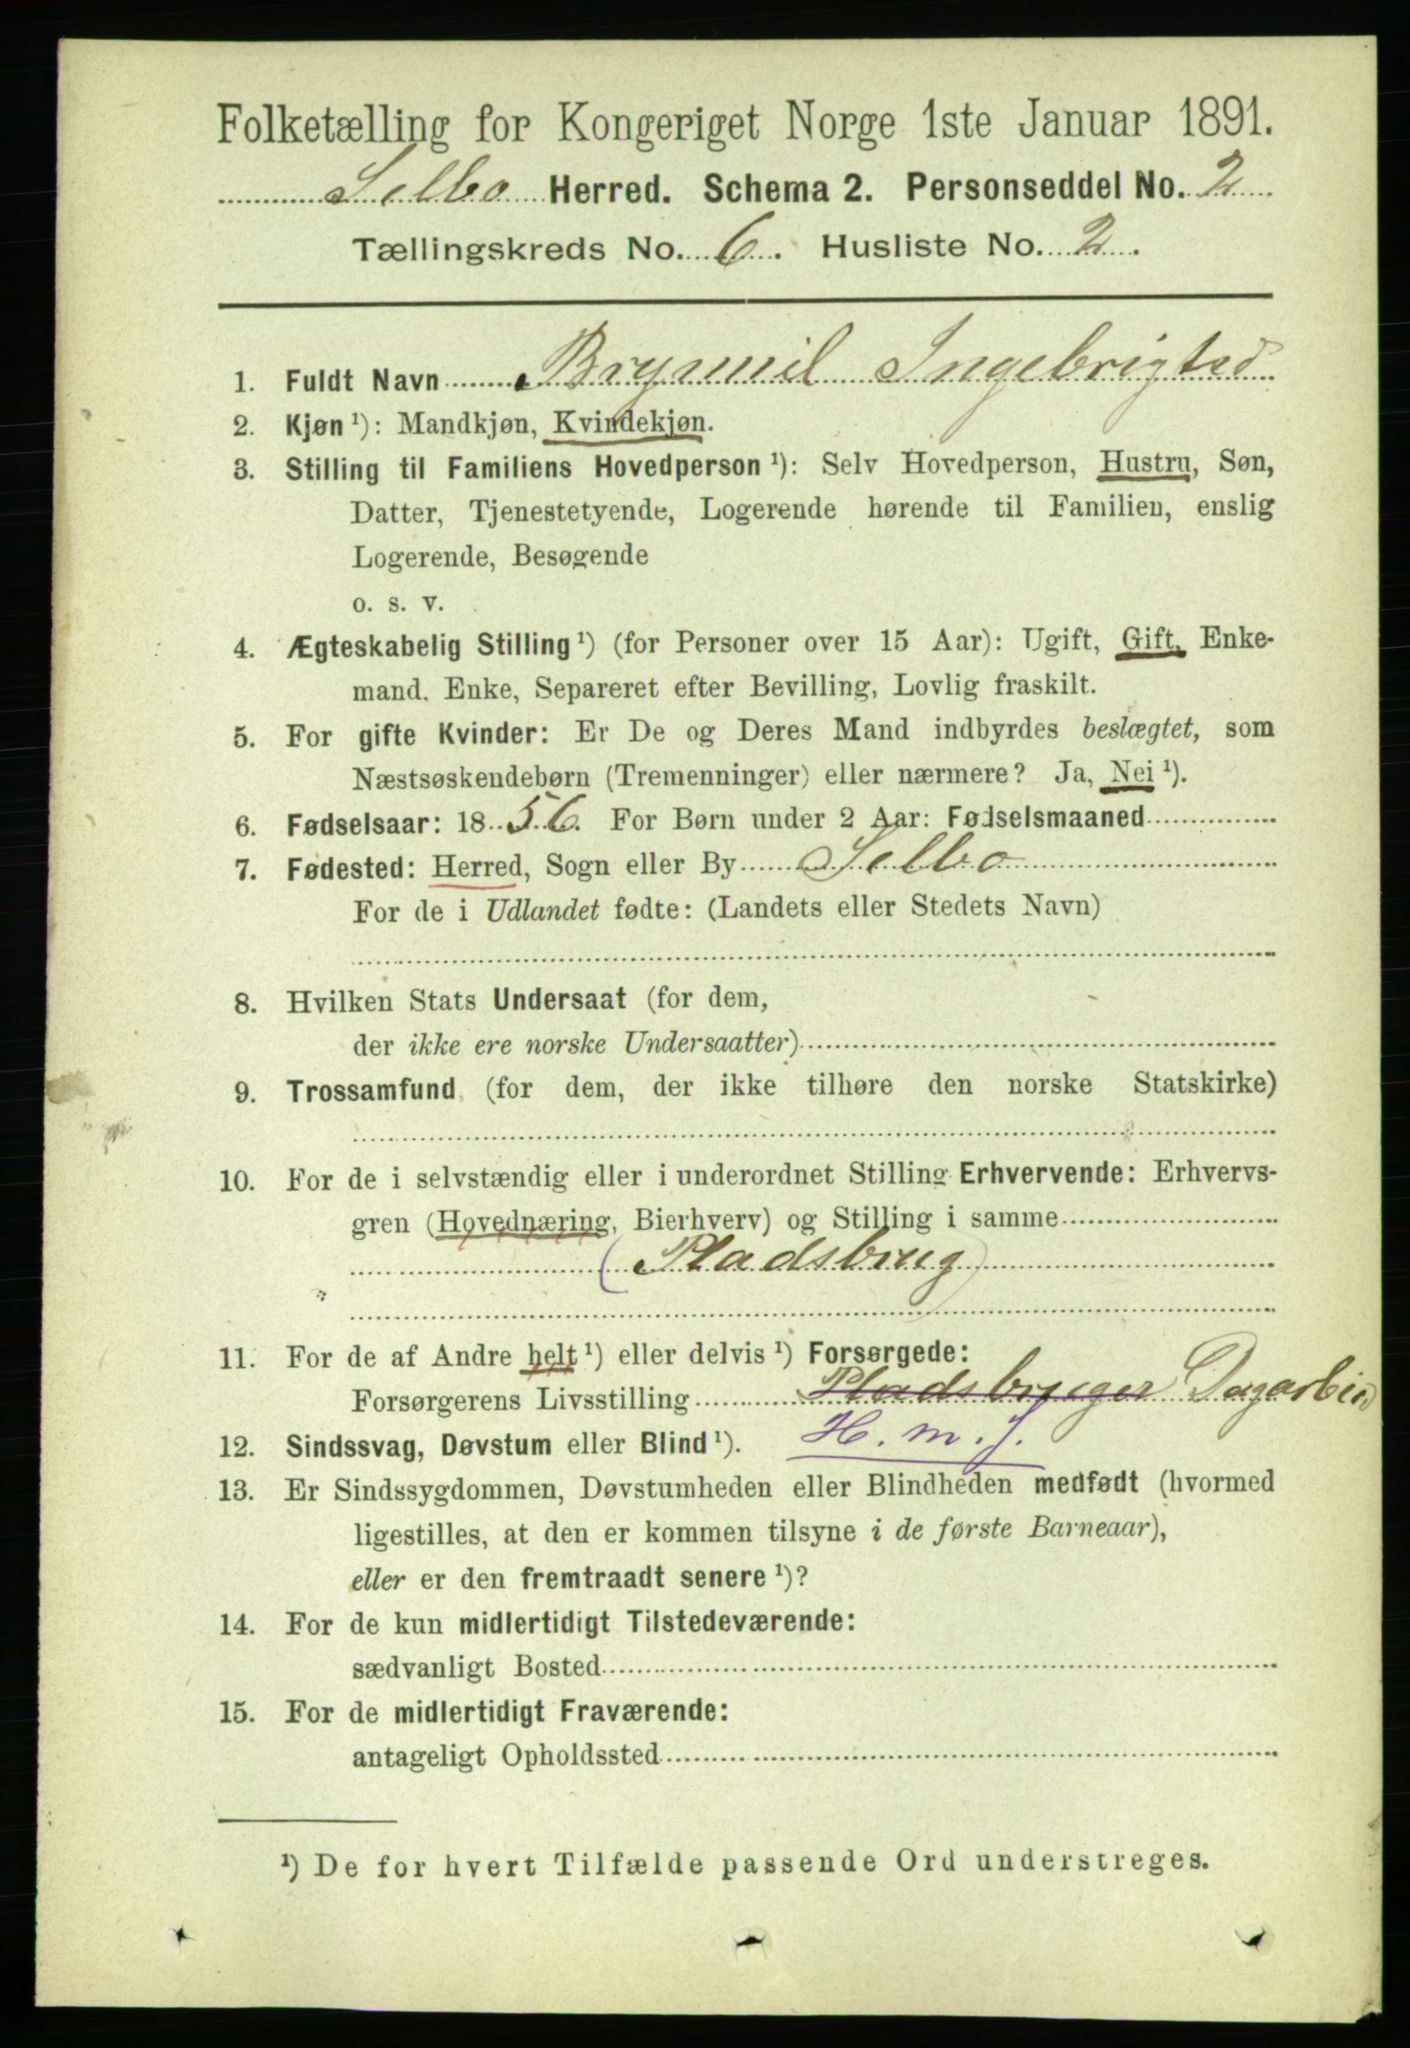 Folketælling for Kongeriget Norge 1ste Januar 1891.
Selbo Herred. Schema 2. Personseddel No. 2
Tællingskreds No. 6. Husliste No. 2.
1. Fuldt Navn Brynnil Ingebrigtsd
2. Kjøn ¹): Mandkjøn, Kvindekjøn.
3. Stilling til Familiens Hovedperson ¹): Selv Hovedperson, Hustru, Søn,
Datter, Tjenestetyende, Logerende hørende til Familien, enslig
Logerende, Besøgende
o. s. v.
4. Ægteskabelig Stilling ¹) (for Personer over 15 Aar): Ugift, Gift, Enke-
mand. Enke, Separeret efter Bevilling, Lovlig fraskilt.
5. For gifte Kvinder: Er De og Deres Mand indbyrdes beslægtet, som
Næstsøskendebørn (Tremenninger) eller nærmere? Ja, Nei ¹).
6. Fødselsaar: 18 56. For Børn under 2 Aar: Fødselsmaaned
7. Fødested: Herred, Sogn eller By Selbo
For de i Udlandet fødte: (Landets eller Stedets Navn)
8. Hvilken Stats Undersaat (for dem,
der ikke ere norske Undersaatter)
9. Trossamfund (for dem, der ikke tilhøre den norske Statskirke)
10. For de i selvstændig eller i underordnet Stilling Erhvervende: Erhvervs-
gren (Hovednæring, Bierhverv) og Stilling i samme
(Pladsbrug)
11. For de af Andre helt ¹) eller delvis ¹) Forsørgede:
Forsørgerens Livsstilling Pladsbruger Dagarbeid
12. Sindssvag, Døvstum eller Blind ¹). H. m. j.
13. Er Sindssygdommen, Døvstumheden eller Blindheden medfødt (hvormed
ligestilles, at den er kommen tilsyne i de første Barneaar),
eller er den fremtraadt senere ¹)?
14. For de kun midlertidigt Tilstedeværende:
sædvanligt Bosted
15. For de midlertidigt Fraværende:
antageligt Opholdssted
¹) De for hvert Tilfælde passende Ord understreges.